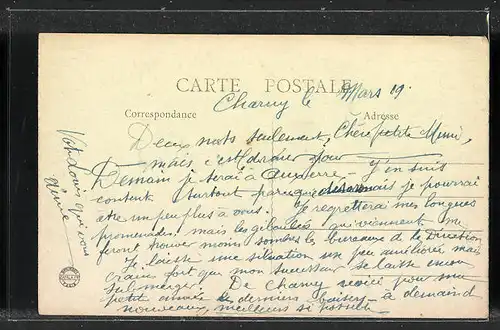 CARTE POSTALE
Correspondance Adresse
Charny le Mars 19.
Deux mots seulement, Chère petite Mimi,
mais c'est
Demain je serai à Auxerre. J'en suis
content surtout parce que désormais je pourrai
être un peu plus à vous. Je regretterai mes longues
promenades, mais les giboulées qui viennent me
feront trouver moins sombres les bureaux de la Direction
Je laisse une situation un peu améliorée mais
crains fort que mon successeur se laisse encore
submerger. De Charny reçois pour ma
petite aimée de derniers baisers - à demain de
nouveaux, meilleurs si possible
qui vous